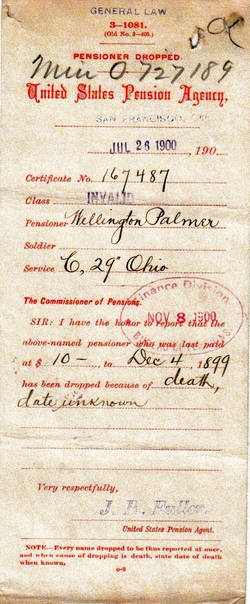 GENERAL LAW
3—1081.
(Old No. 3—405.)
OK
PENSIONER DROPPED.
Min O 727189
United States Pension Agency,
SAN FRANCISCO, CAL
JUL 26 1900 , 190
Certificate No. 167487
Class INVALID
Pensioner Wellington Palmer
Soldier
Service C, 29" Ohio
Finance Division
NOV 8 1900
The Commissioner of Pensions.
SIR: I have the honor to report that the
above-named pensioner who was last paid
at $ 10 – , to Dec 4, 1899
has been dropped because of death,
date unknown
Very respectfully,
J. R. Fuller
United States Pension Agent.
NOTE.—Every name dropped to be thus reported at once,
and when cause of dropping is death, state date of death
when known.